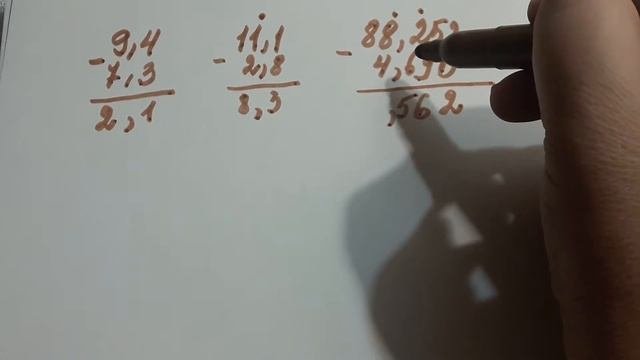 9,4
- 7,3
2,1
11,1
- 2,8
8,3
88,252
- 4,690
,562